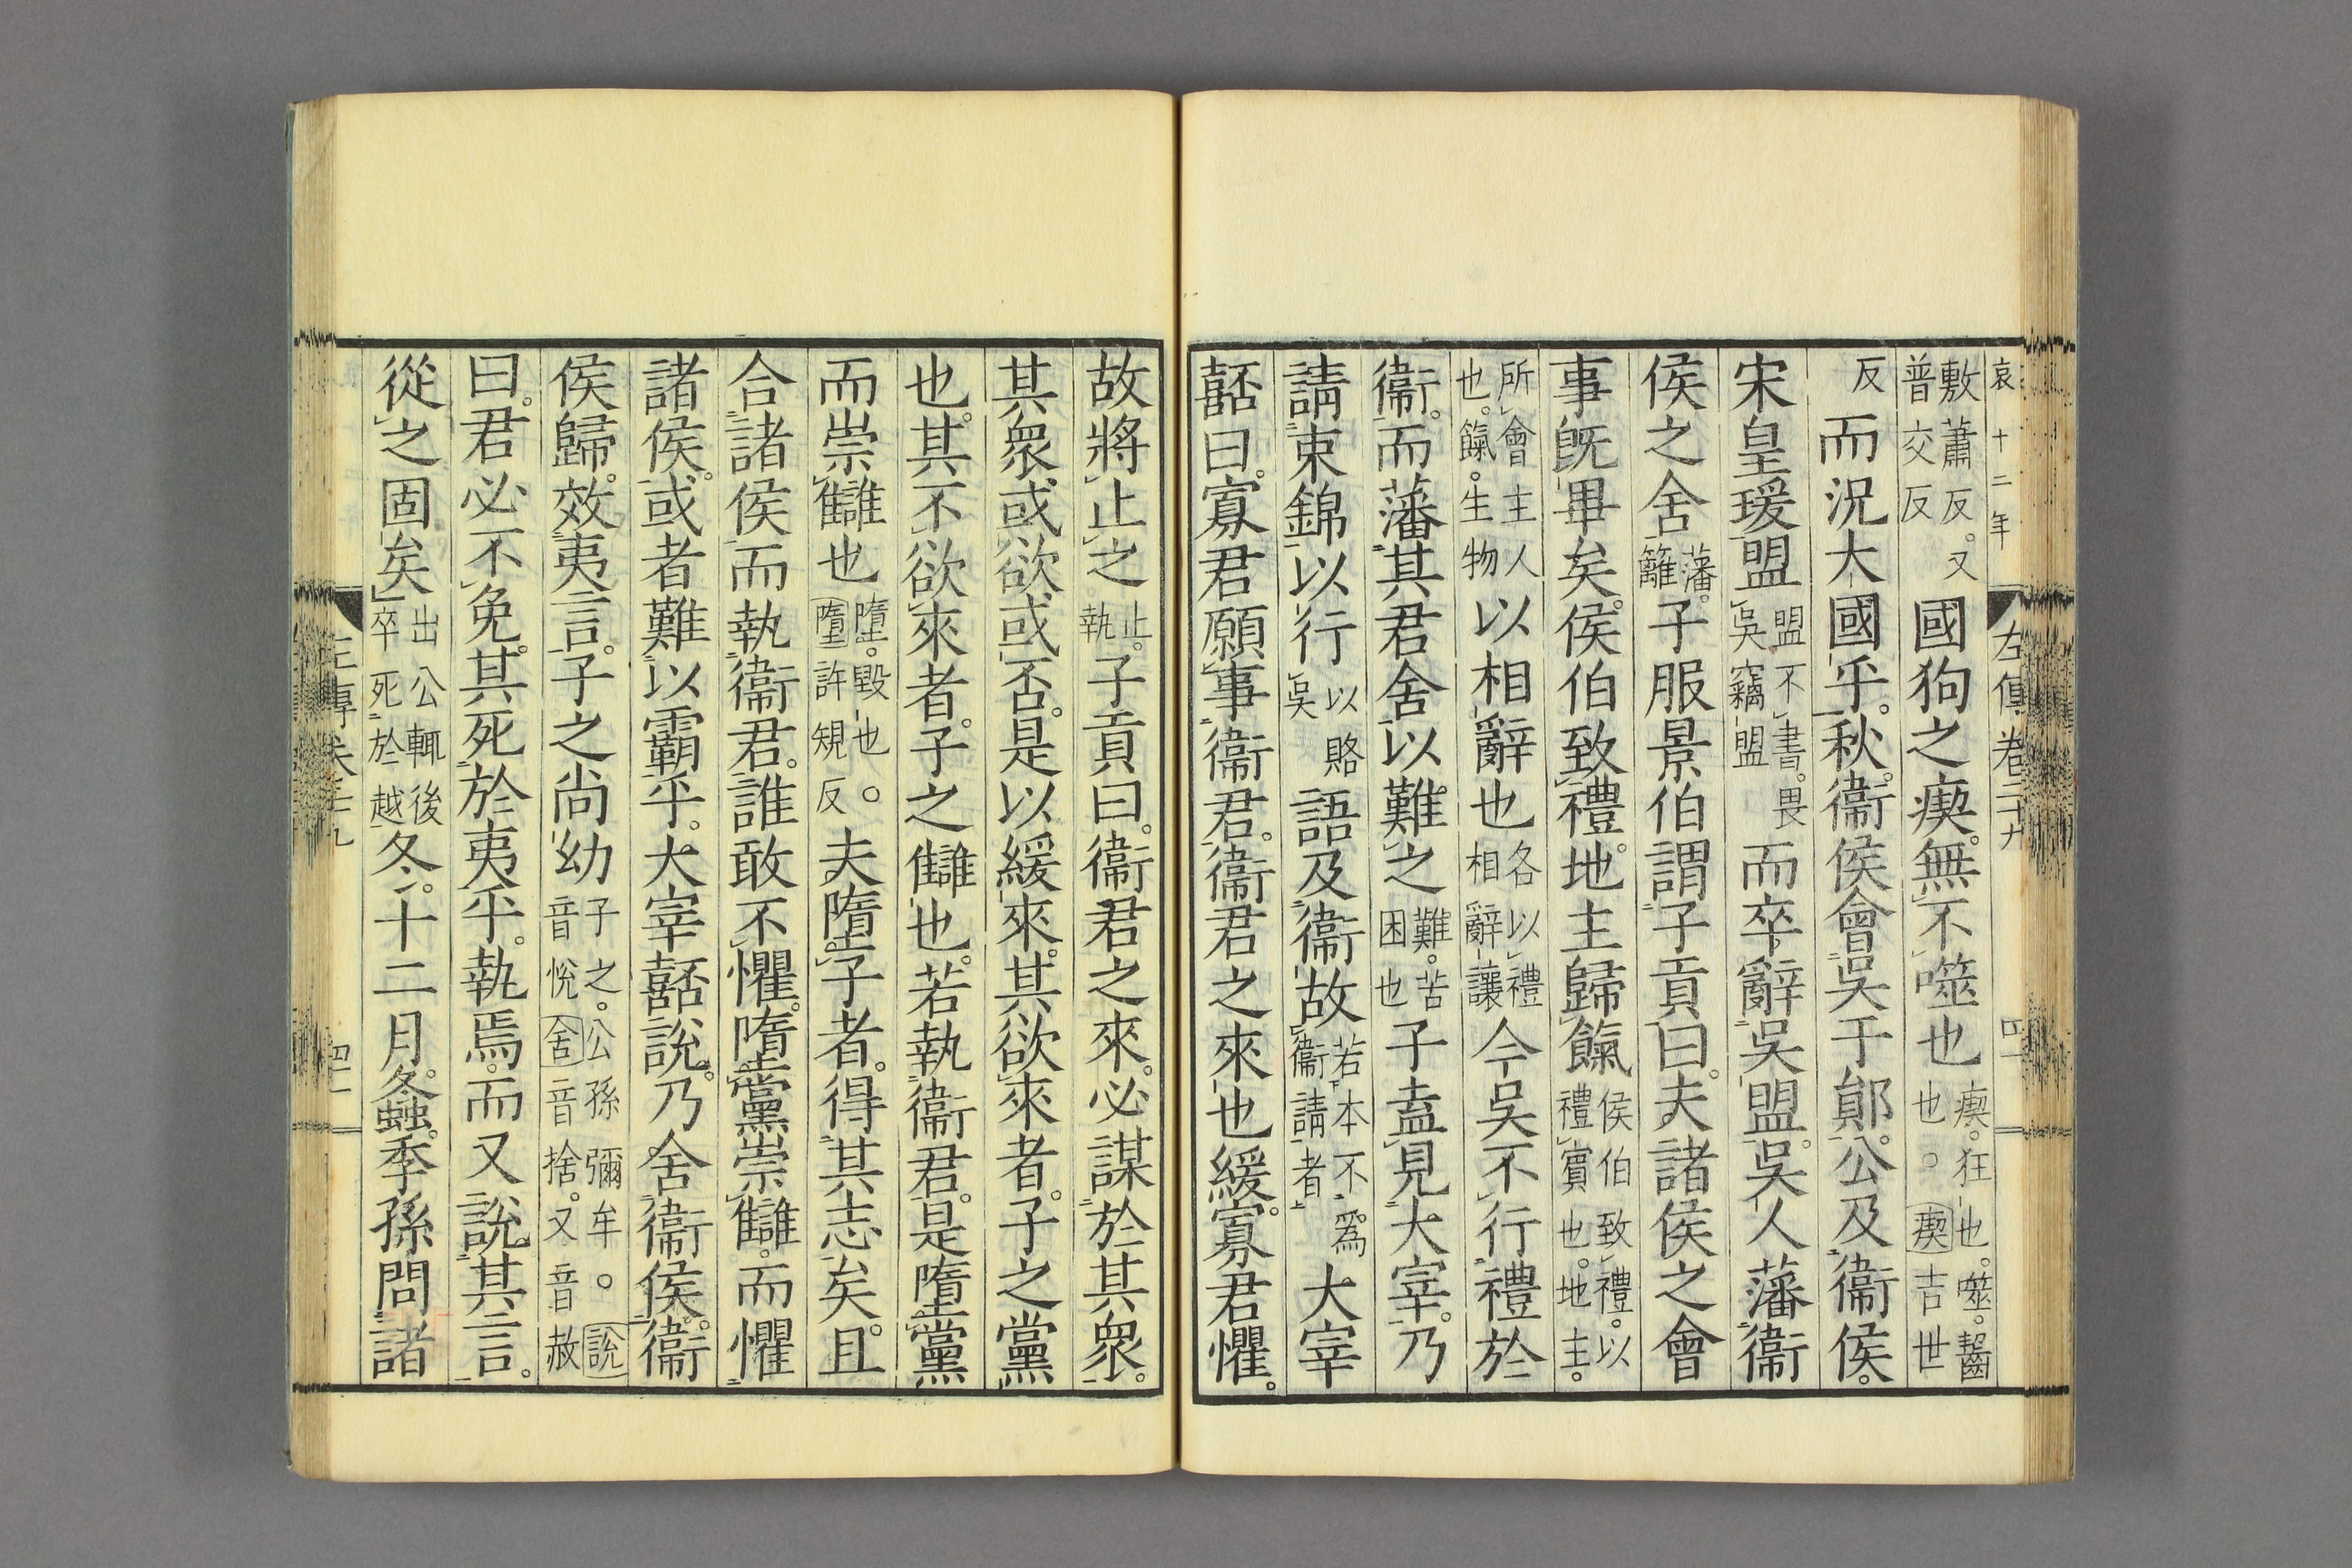 哀十二年 左傳卷二十九
敷蕭反。又普交反國狗之瘈。無不噬也瘈。狂也。噬。齧也。瘈吉世
反而況大國乎。秋。衞侯會吳于鄖。公及衞侯。
宋皇瑗盟盟不書。畏吳竊盟而卒辭吳盟。吳人藩衞
侯之舍藩。籬子服景伯謂子貢曰。夫諸侯之會
事旣畢矣。侯伯致禮。地主歸餼侯伯致禮。以禮賓也。地主。
所會主人也。餼。生物以相辭也各以禮相辭讓今吳不行禮於
衞。而藩其君舍以難之難。苦困也子盍見大宰。乃
請束錦以行以賂吳語及衞故若本不爲衞請者大宰
嚭曰。寡君願事衞君。衞君之來也緩。寡君懼。
故將止之止。執子貢曰。衞君之來。必謀於其衆。
其衆或欲或否。是以緩來。其欲來者。子之黨
也。其不欲來者。子之讎也。若執衞君。是隳黨
而崇讎也隳。毀也。隳許規反夫隳子者。得其志矣。且
合諸侯而執衞君。誰敢不懼。隳黨崇讎。而懼
諸侯。或者難以霸乎。大宰嚭說。乃舍衞侯。衞
侯歸。效夷言。子之尚幼子之。公孫彌牟。說音悅舍音捨。又音赦
曰。君必不免。其死於夷乎。執焉。而又說其言。
從之固矣出公輒後卒死於越冬。十二月。螽。季孫問諸